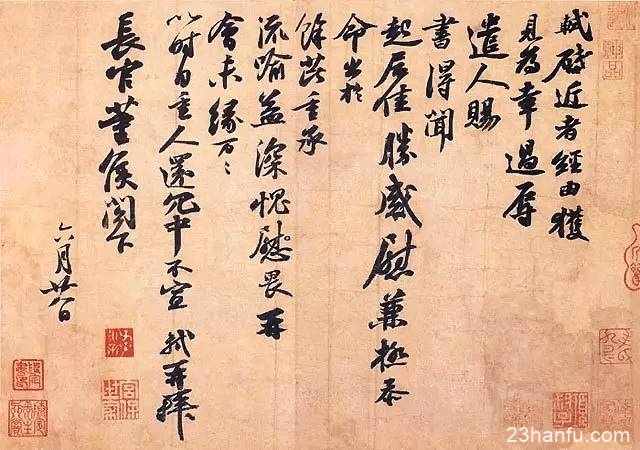 軾啟近者經由獲
見為幸過辱
遣人賜
書得聞
起居佳勝感慰兼極忝
命出於
餘芘重承
流喻益深愧畏再
會未緣万〻
以時自重人還冗中不宣 軾再拜
長官董侯閣下
六月廿八日
23hanfu.com